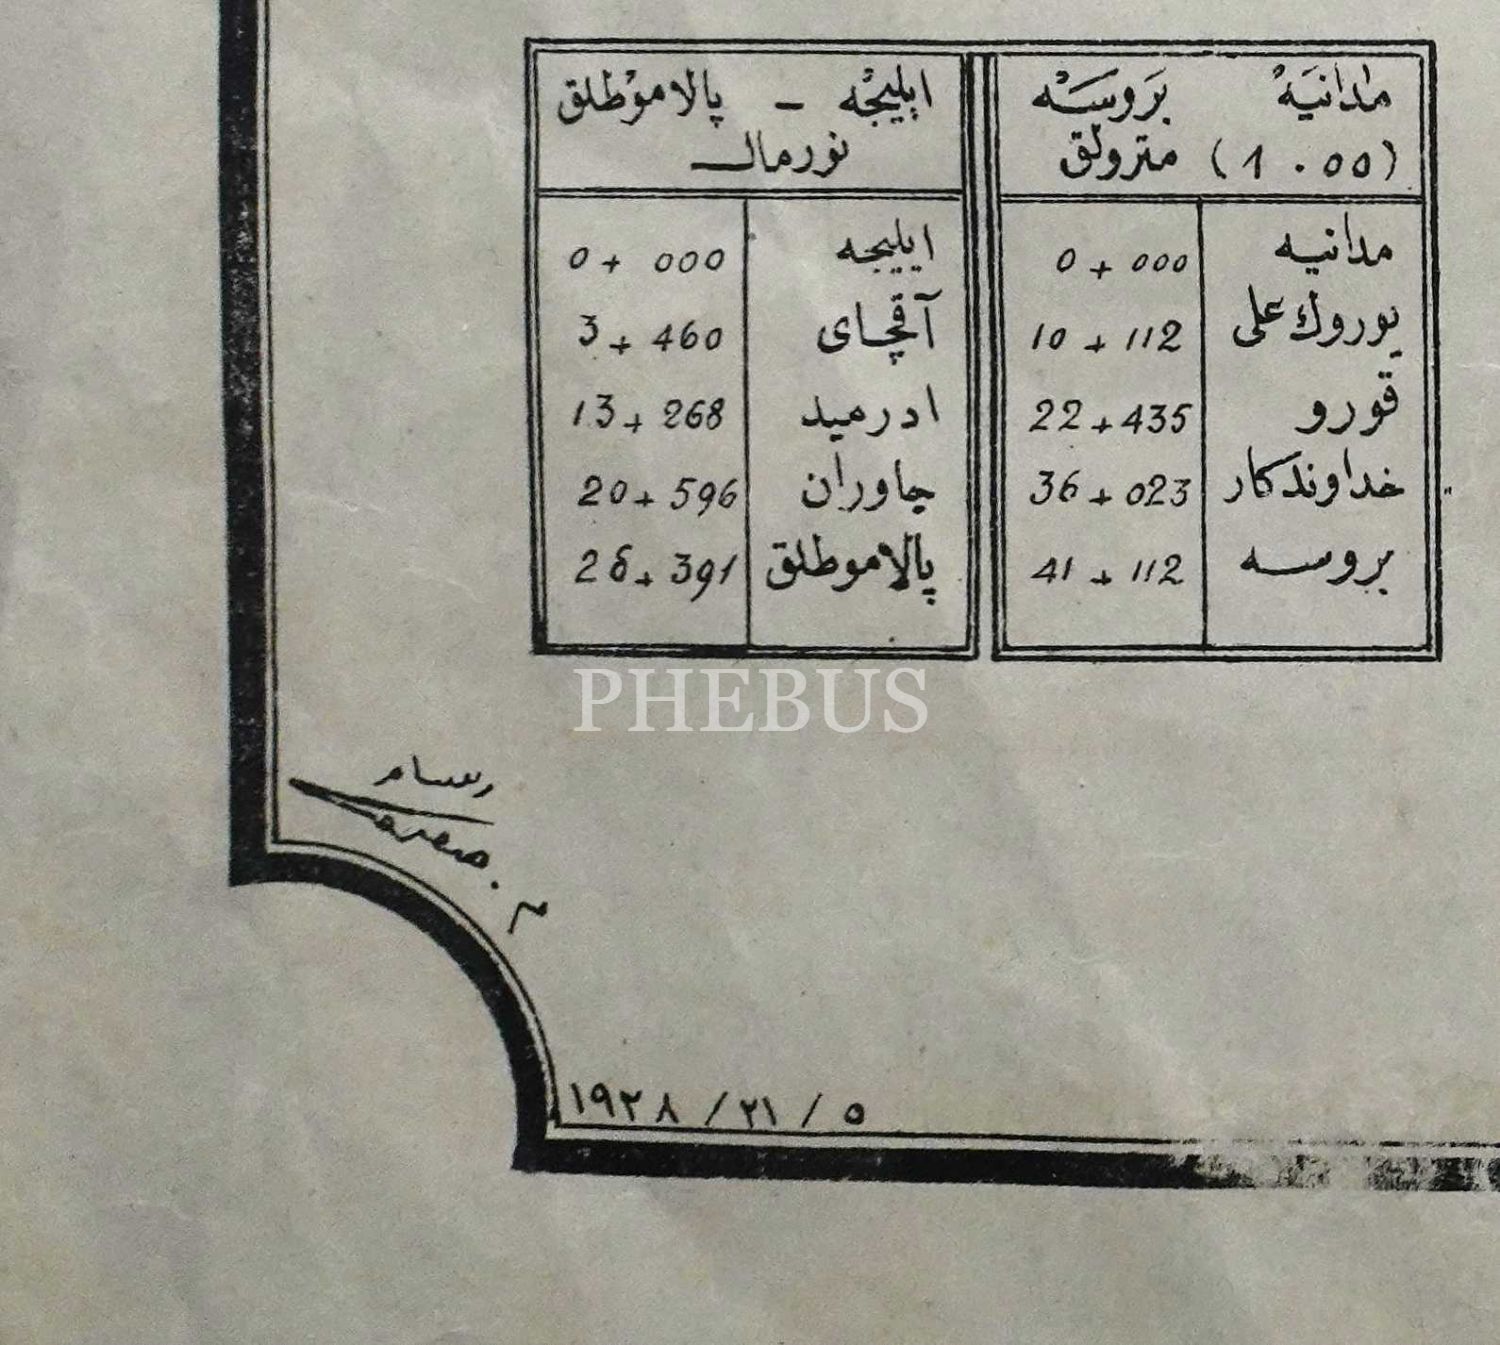 مدانیه بروسه
(1.00) مترولق
مدانیه 0 + 000
یوروك علی 10 + 112
قورو 22 + 435
خداوندكار 36 + 023
بروسه 41 + 112
ایلیجه - پالاموطلق
نورمال
ایلیجه 0 + 000
آقچای 3 + 460
ادرمید 13 + 268
جاوران 20 + 596
پالاموطلق 28 + 391
PHEBUS
رسام
١٩٢٨ / ٢١ / ٥